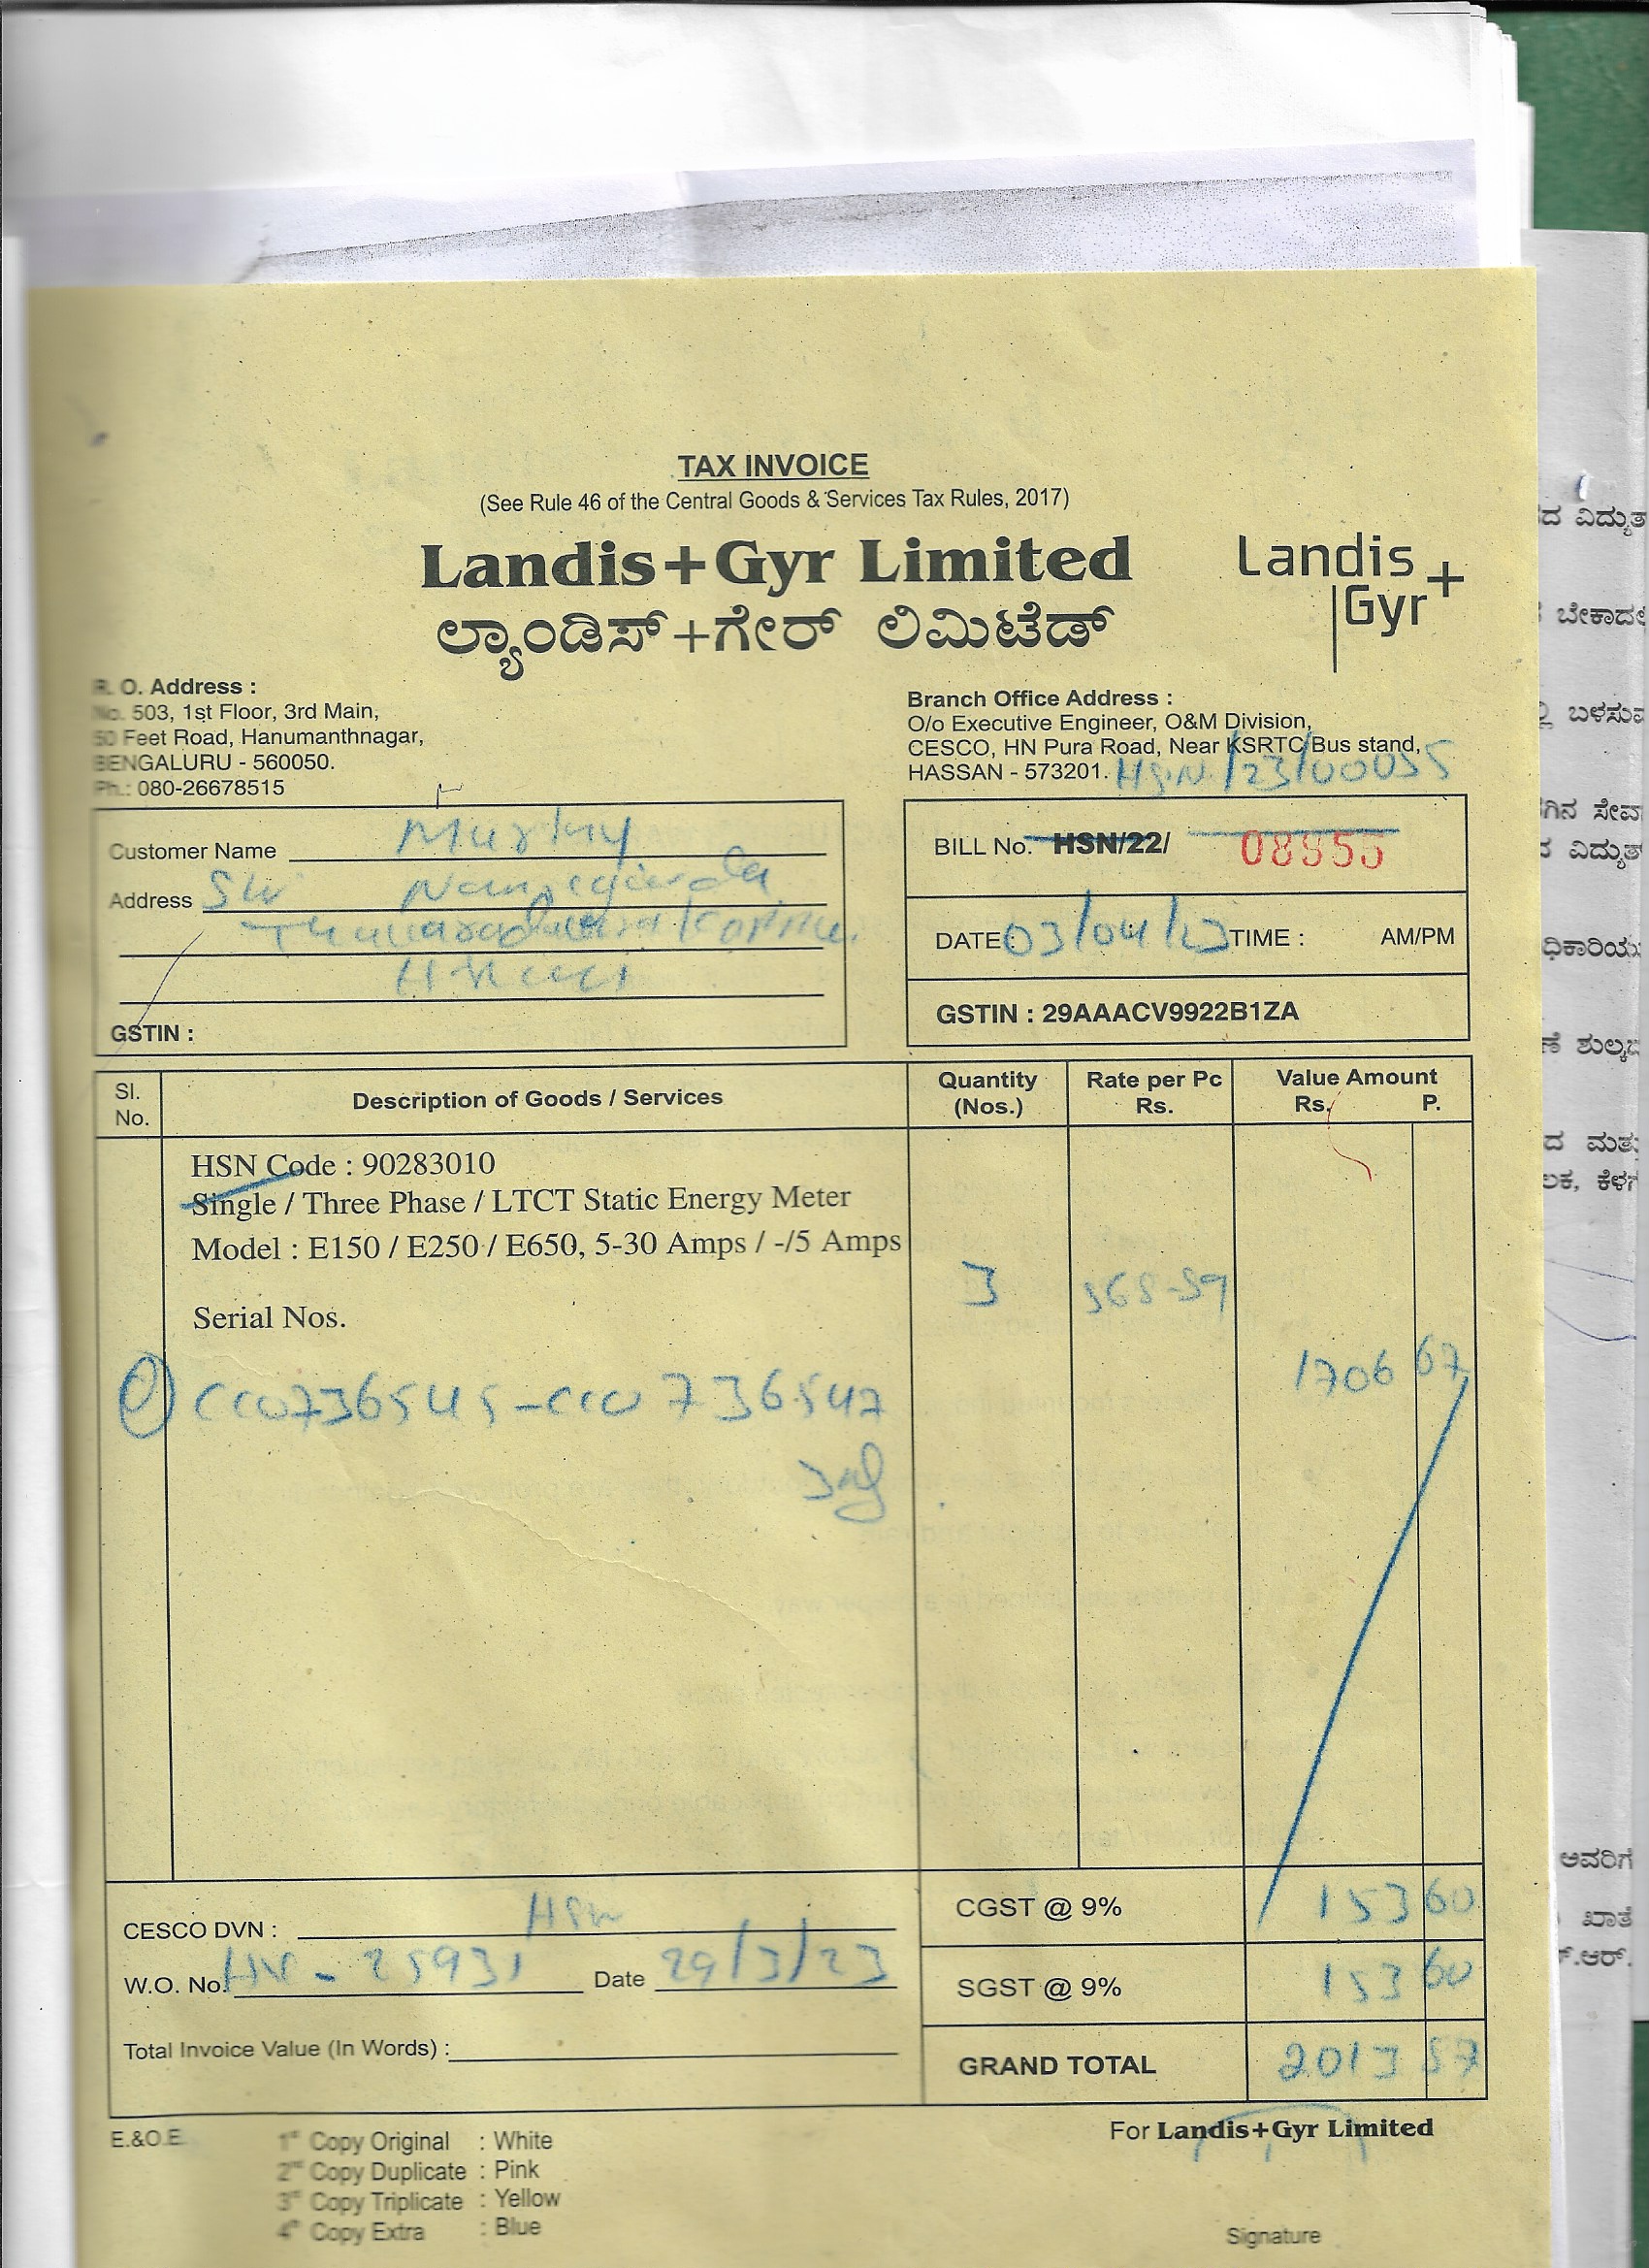 TAX INVOICE
(See Rule 46 of the Central Goods & Services Tax Rules, 2017)
Landis+Gyr Limited
ಲ್ಯಾಂಡಿಸ್+ಗೇರ್ ಲಿಮಿಟೆಡ್
Landis
Gyr+
R. O. Address :
No. 503, 1st Floor, 3rd Main,
50 Feet Road, Hanumanthnagar,
BENGALURU - 560050.
Ph.: 080-26678515
Branch Office Address :
O/o Executive Engineer, O&M Division,
CESCO, HN Pura Road, Near KSRTC Bus stand,
HASSAN - 573201. HSN/23/00055
Customer Name Murthy
Address S/o Nanjegowda
GSTIN :
BILL No. HSN/22/ 08955
DATE: 03/04/23 TIME : AM/PM
GSTIN : 29AAACV9922B1ZA
Sl. No. Description of Goods / Services Quantity (Nos.) Rate per Pc Rs. Value Amount Rs. P.
HSN Code : 90283010
Single / Three Phase / LTCT Static Energy Meter
Model : E150 / E250 / E650, 5-30 Amps / -/5 Amps
3 568-89
Serial Nos.
1706 67
736545 - 736547
CESCO DVN : HSN
CGST @ 9% 153 60
W.O. No. - 25931 Date 29/3/23
SGST @ 9% 153 60
Total Invoice Value (In Words) :
GRAND TOTAL 2013 87
E.&O.E.
1st Copy Original : White
2nd Copy Duplicate : Pink
3rd Copy Triplicate : Yellow
4th Copy Extra : Blue
For Landis+Gyr Limited
Signature
ದ ವಿದ್ಯುತ
ಬೇಕಾದಲ್ಲಿ
ಬಳಸುವ
ಗಿನ ಸೇವಾ
ವಿದ್ಯುತ್
ಧಿಕಾರಿಯು
ಣೆ ಶುಲ್ಕದ
ದ ಮತ್ತು
ಲಕ, ಕೆಳಗ
ಅವರಿಗೆ
ಖಾತೆ
.ಆರ್.